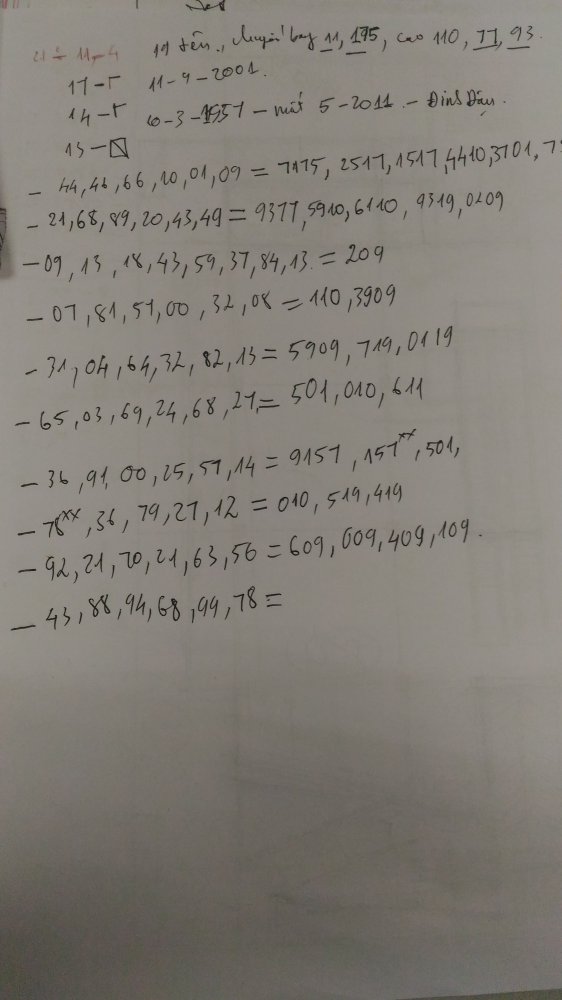 19 tên, chuyến bay 11, 175, cao 110, 77, 93.
17-5 11-9-2001.
14-5 10-3-1957 - mất 5-2011 - Đinh Dậu.
13-
- 44,46,66,20,01,09 = 7175, 2517,1517,4410,3701,
- 21,68,89,20,43,49 = 9377,5910,6110, 9319,0209
- 09, 13, 18,43,59,37,84,13. = 209
- 07,81,51,00,32,08 = 110,3909
- 31,04,64,32,82,13 = 5909,719,0119
- 65,03,69,24,68,27 = 501,010,611
- 36,91,00,25,57,14 = 9157,157xx,501,
- 78xx,36,79,27,12 = 010,519,419
- 92,21,70,21,63,56 = 609,009,409,109.
- 43,88,94,68,99,78 =